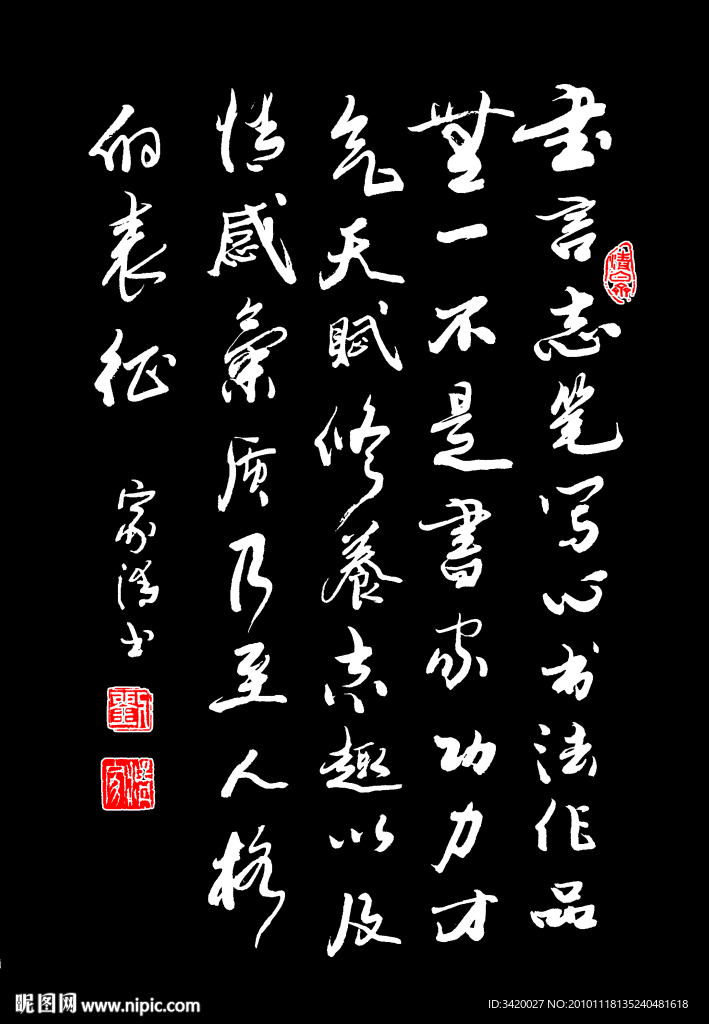 書言志笔写心书法作品
無一不是書家功力才
气天賦修養志趣以及
情感氣质乃至人格
的表征
家清书
昵图网 www.nipic.com
ID:3420027 NO:20101118135240481618